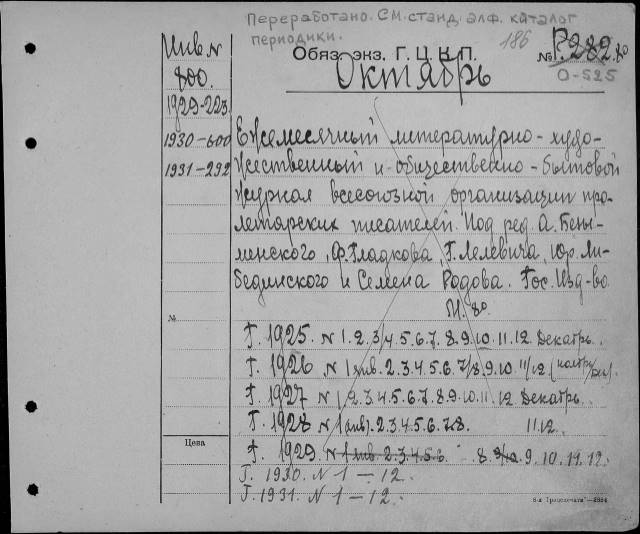 Переработано. См. станд. алф. каталог
периодики.
186
Инв. №
Обяз. экз. Г. Ц. К. П.
№ Р.282.80
О-525
800.
Октябрь
1929-223
1930-600
1931-292
Ежемесячный литературно-худо-
жественный и общественно-бытовой
журнал всесоюзной организации про-
летарских писателей. Под ред. А. Безы-
менского, Ф. Гладкова, Г. Лелевича, Юр. Ли-
бединского и Семена Родова. Гос. Изд-во.
М. 8о
№
Г. 1925. № 1.2.3/4.5.6.7.8.9.10.11.12. Декабрь.
Г. 1926 № 1 янв. 2.3.4.5.6.7/8.9.10 11/12
Г. 1927 № 1.2.3.4.5.6.7.8.9.10.11.12 Декабрь.
Г. 1928 № 1 (янв). 2.3.4.5.6.7.8. 11.12.
Цена
Г. 1929. № 1 янв. 2.3.4.5.6 8. 9. 10. 11. 12.
Г. 1930. № 1 — 12.
Г. 1931. № 1 — 12.